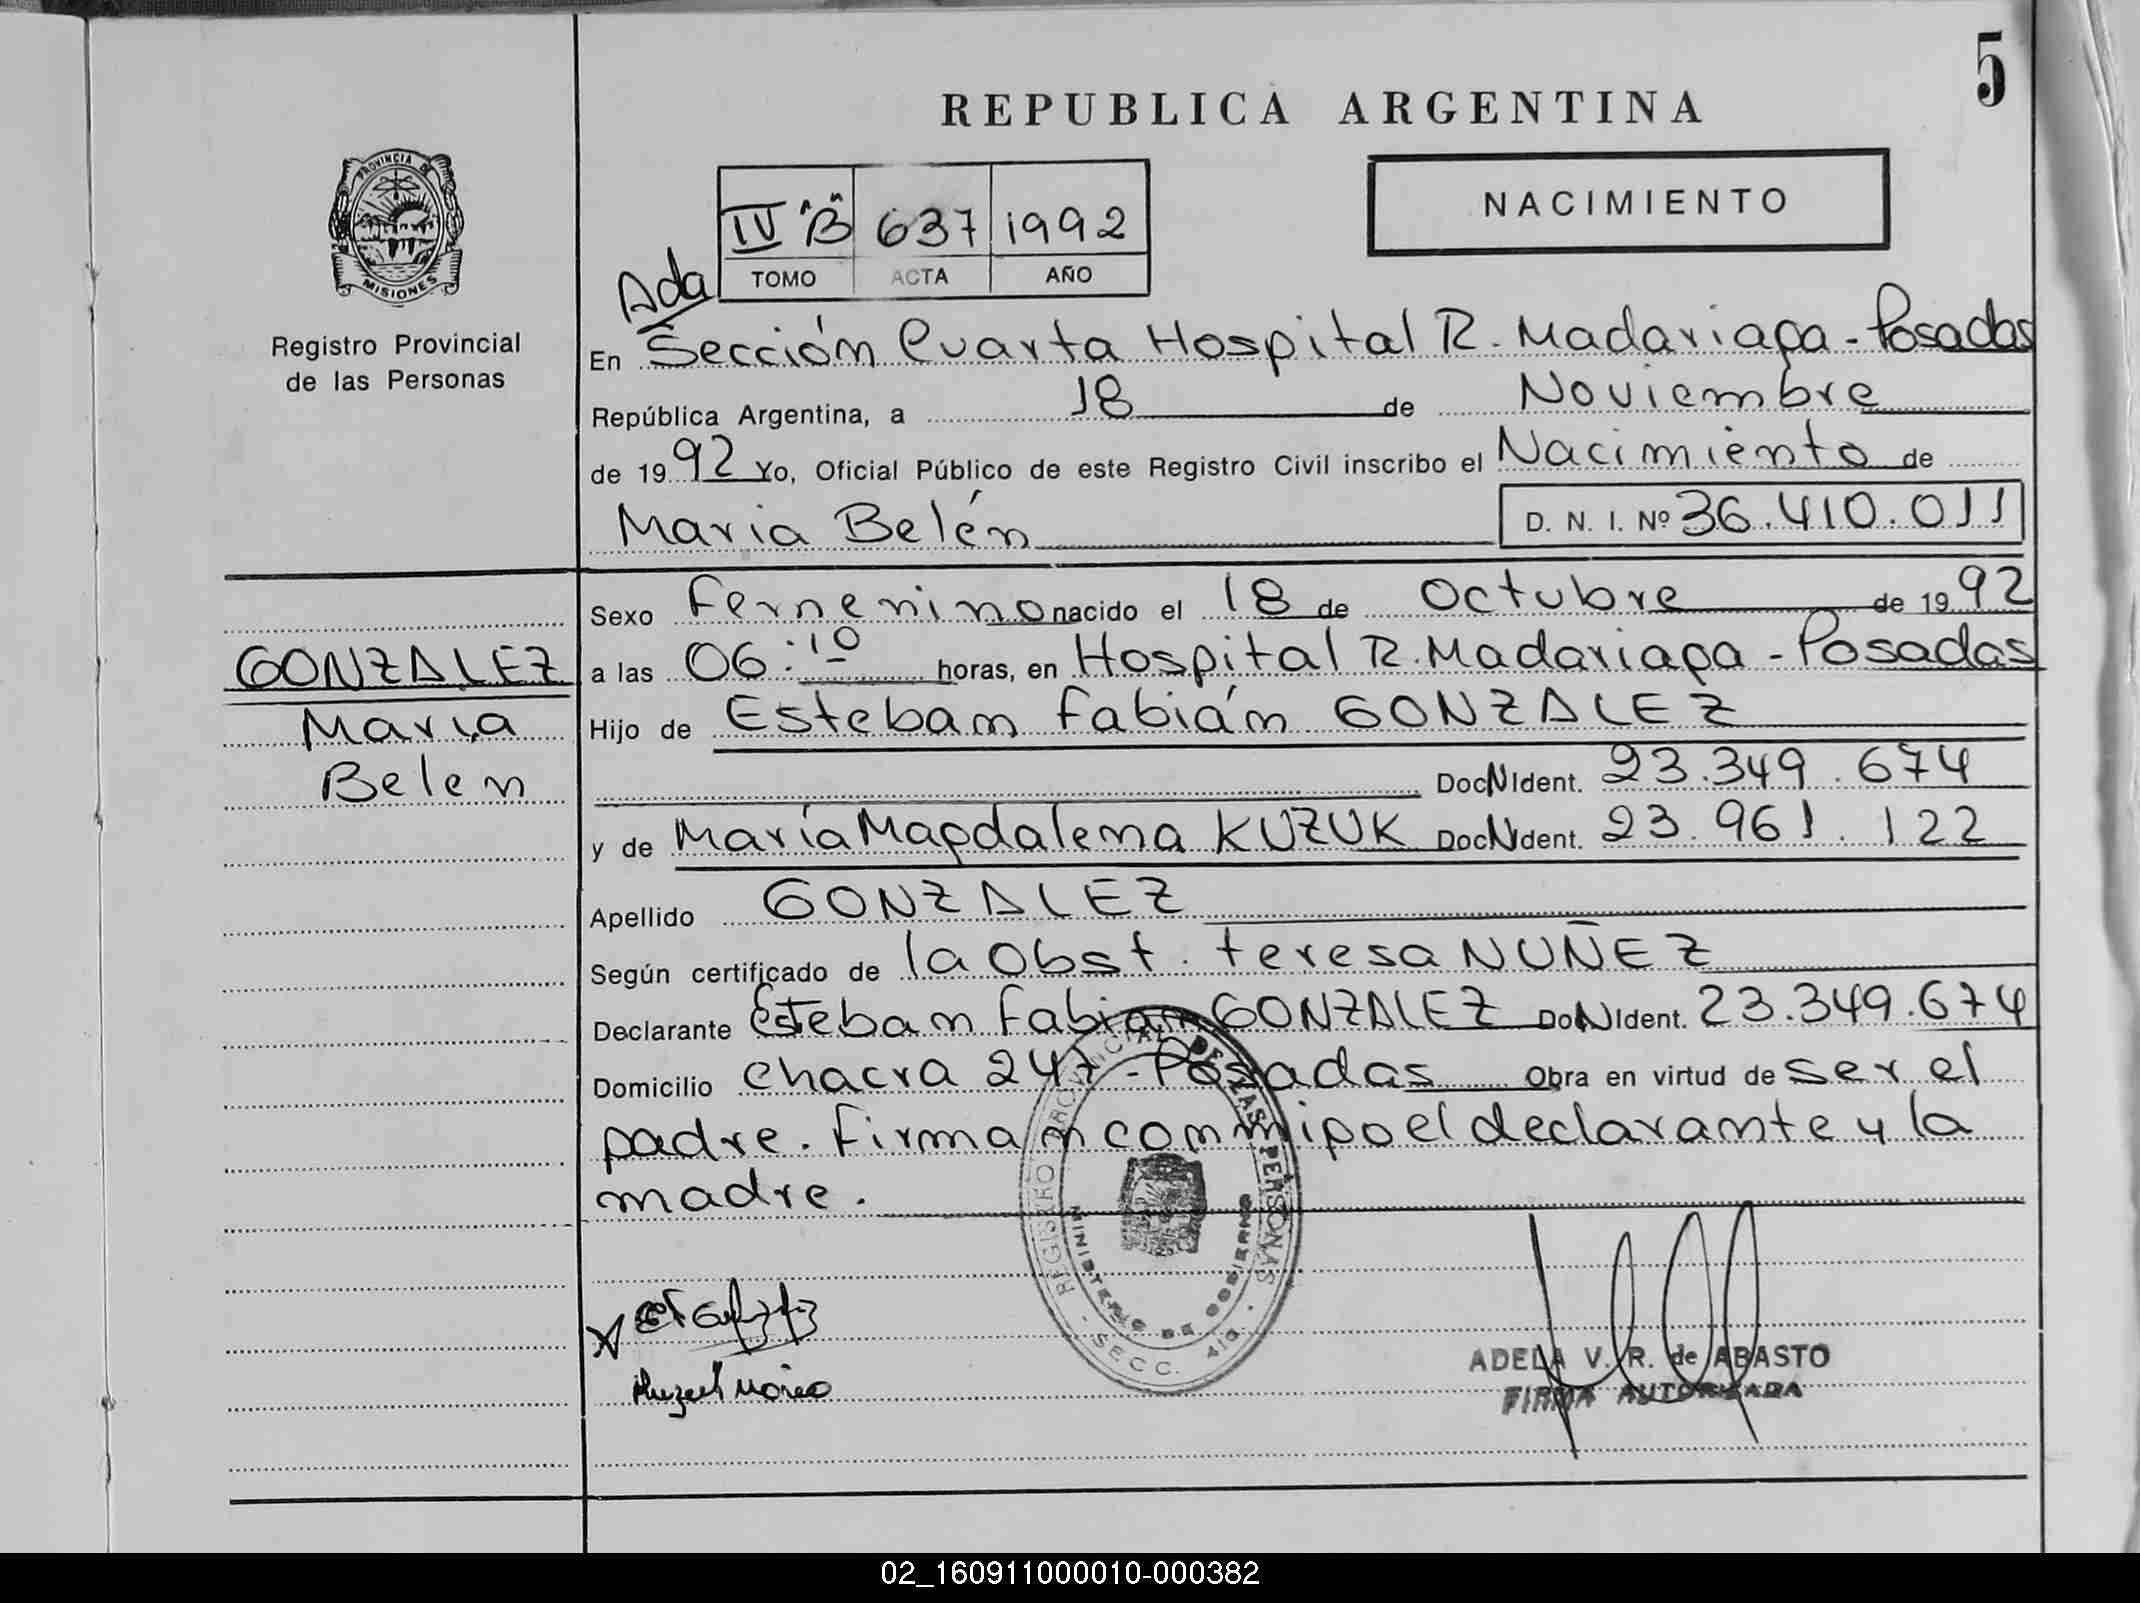 5
REPUBLICA ARGENTINA
PROVINCIA DE
MISIONES
Registro Provincial
de las Personas
IV "B" 637 1992
TOMO ACTA AÑO
NACIMIENTO
Ada
En Sección Cuarta Hospital R. Madariaga - Posadas
República Argentina, a 18 de Noviembre
de 1992 Yo, Oficial Público de este Registro Civil inscribo el Nacimiento de
Maria Belén D. N. I. Nº 36.410.011
Sexo Femenino nacido el 18 de Octubre de 1992
GONZALEZ
Maria
Belen
a las 06:10 horas, en Hospital R. Madariaga - Posadas
Hijo de Esteban Fabián GONZALEZ
Doc N Ident. 23.349.674
y de María Magdalena KUZUK Doc N dent. 23.961.122
Apellido GONZALEZ
Según certificado de la Obst. teresa NUÑEZ
Declarante Esteban Fabian GONZALEZ Do N Ident. 23.349.674
Domicilio chacra 247 - Posadas Obra en virtud de ser el
padre. Firman conmigo el declarante y la
madre.
REGISTRO PROVINCIAL DE LAS PERSONAS
MINISTERIO DE GOBIERNO
SECC. 4TA
ADELA V. R. de ABASTO
FIRMA AUTORIZADA
02_160911000010-000382